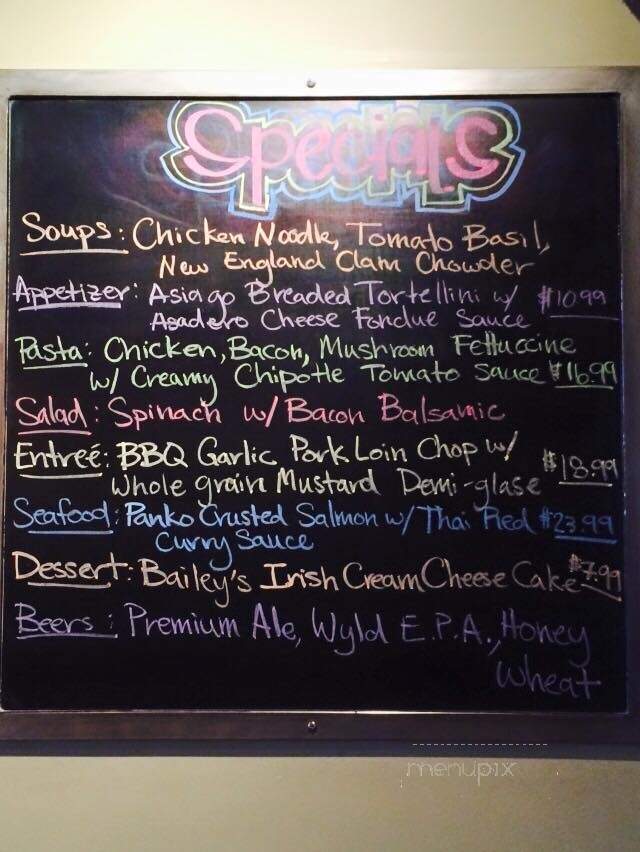 Specials
Soups: Chicken Noodle, Tomato Basil,
New England Clam Chowder
Appetizer: Asiago Breaded Tortellini w/ $10.99
Asadero Cheese Fondue Sauce
Pasta: Chicken, Bacon, Mushroom Fettuccine
w/ Creamy Chipotle Tomato Sauce $16.99
Salad: Spinach w/ Bacon Balsamic
Entreé: BBQ Garlic Pork Loin Chop w/ $18.99
Whole grain Mustard Demi-glase
Seafood: Panko Crusted Salmon w/ Thai Red $23.99
Curry Sauce
Dessert: Bailey's Irish Cream Cheese Cake $7.99
Beers: Premium Ale, Wyld E.P.A., Honey
Wheat
menupix